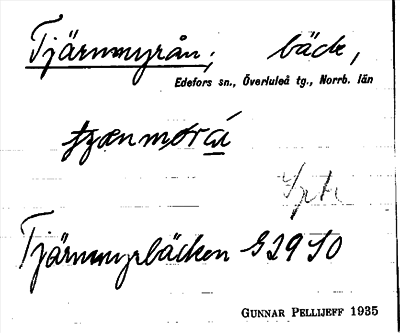 Tjärnmyrån, bäck,
Edefors sn., Överluleå tg., Norrb. län
Tjärnmyrbäcken G29 SO
GUNNAR PELLIJEFF 1935